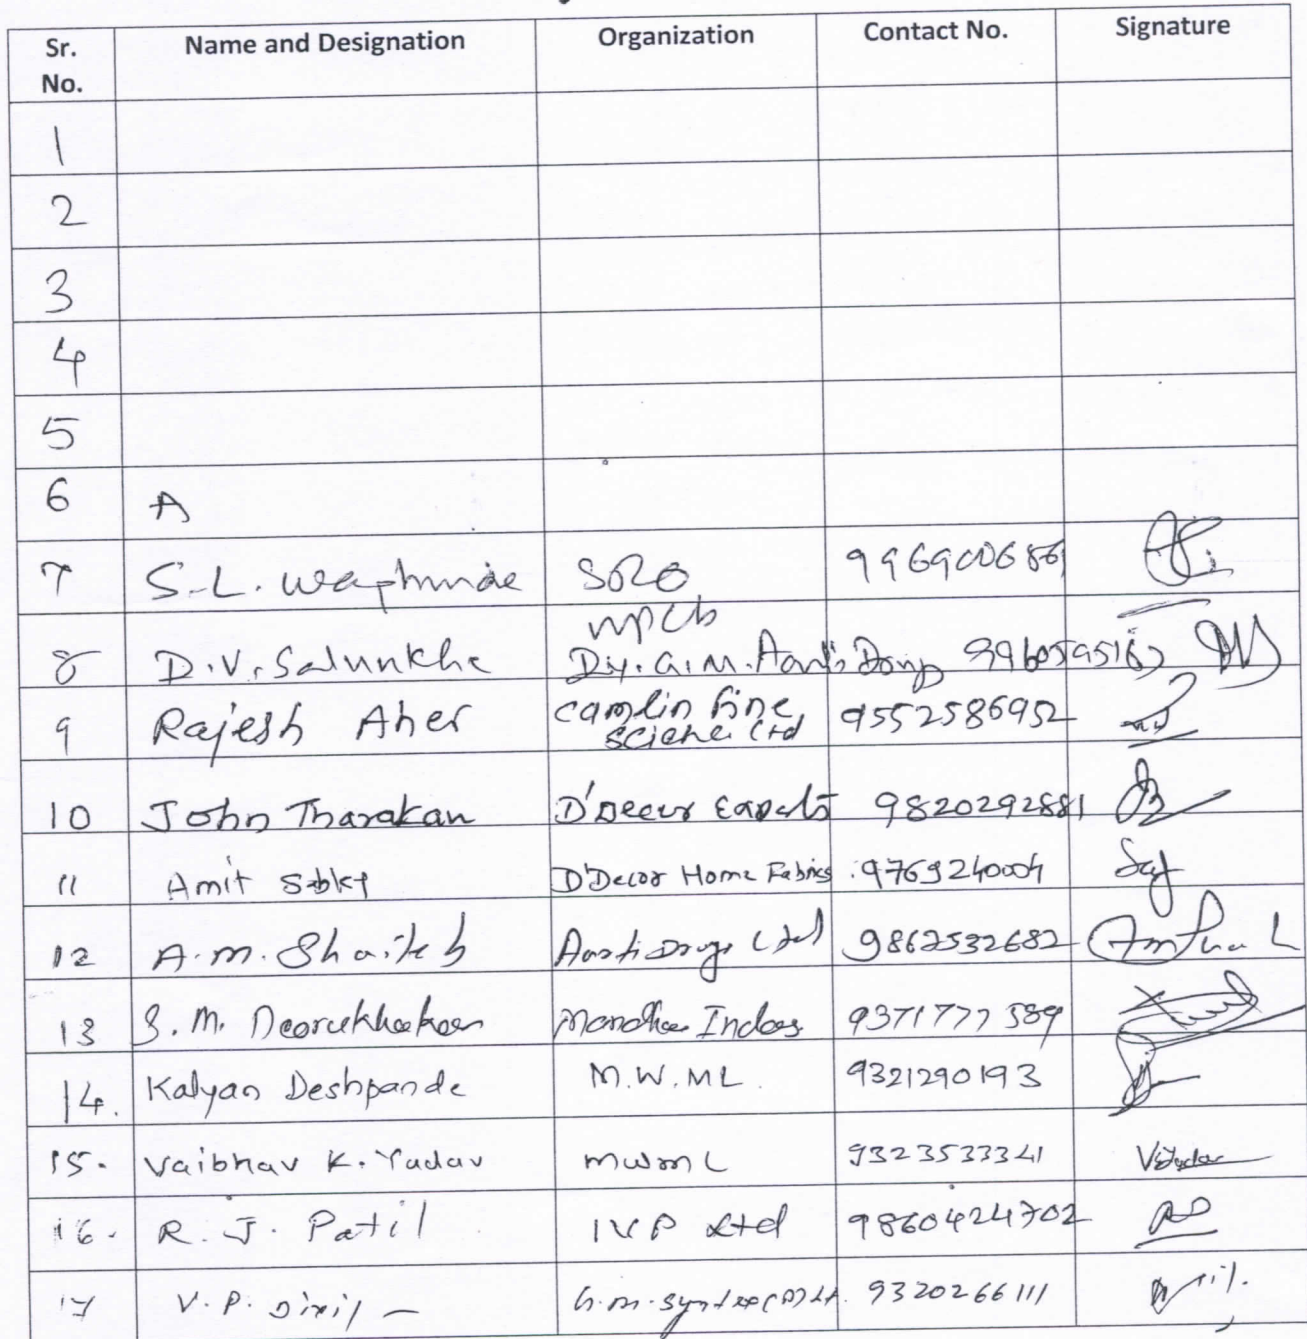 Sr. No. Name and Designation Organization Contact No. Signature
1
2
3
4
5
6 A
7 S.L. Waghmode SRO MPCB 9969006861
8 D.V. Salunkhe Dy. G.M. Aarti Drugs
9 Rajesh Aher Camlin Fine Science Ltd 9552586952
10 John Tharakan D'Decor Exports 9820292881
11 Amit D'Decor Home Fabrics 9769240004
12 A.M. Shaikh Aarti Drugs Ltd 9862532682
13 S.M. Deorukhakar 9371777589
14. Kalyan Deshpande M.W.ML. 9321290193
15. Vaibhav K. Yadav MWML 9323533341 VYadav
16. R. J. Patil IVP Ltd 9860424702
17 V.P. Dixit - G.M. Syntex (P) Lt. 9320266111